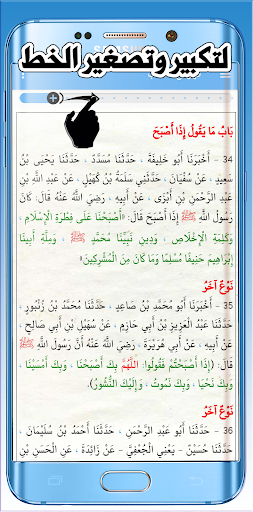 لتكبير وتصغير الخط
بَابُ مَا يَقُولُ إِذَا أَصْبَحَ
34 - أَخْبَرَنَا أَبُو خَلِيفَةَ ، حَدَّثَنَا مُسَدَّدٌ ، حَدَّثَنَا يَحْيَى بْنُ
سَعِيدٍ ، عَنْ سُفْيَانَ ، حَدَّثَنِي سَلَمَةُ بْنُ كُهَيْلٍ ، عَنْ عَبْدِ اللَّهِ بْنِ
عَبْدِ الرَّحْمَنِ بْنِ أَبْزَى ، عَنْ أَبِيهِ ، رَضِيَ اللَّهُ عَنْهُ قَالَ: كَانَ
رَسُولُ اللَّهِ ﷺ إِذَا أَصْبَحَ قَالَ: «أَصْبَحْنَا عَلَى فِطْرَةِ الْإِسْلَامِ ،
وَكَلِمَةِ الْإِخْلَاصِ ، وَدِينِ نَبِيِّنَا مُحَمَّدٍ ﷺ ، وَمِلَّةِ أَبِينَا
إِبْرَاهِيمَ حَنِيفًا مُسْلِمًا وَمَا كَانَ مِنَ الْمُشْرِكِينَ»
نَوْعٌ آخَرُ
35 - أَخْبَرَنَا مُحَمَّدُ بْنُ صَاعِدٍ ، حَدَّثَنَا مُحَمَّدُ بْنُ زُنْبُورٍ ،
حَدَّثَنَا عَبْدُ الْعَزِيزِ بْنُ أَبِي حَازِمٍ ، عَنْ سُهَيْلِ بْنِ أَبِي صَالِحٍ
، عَنْ أَبِيهِ ، عَنْ أَبِي هُرَيْرَةَ ، رَضِيَ اللَّهُ عَنْهُ أَنَّ رَسُولَ اللَّهِ ﷺ
قَالَ: (إِذَا أَصْبَحْتُمْ فَقُولُوا: اللَّهُمَّ بِكَ أَصْبَحْنَا ، وَبِكَ أَمْسَيْنَا ،
وَبِكَ نَحْيَا ، وَبِكَ نَمُوتُ ، وَإِلَيْكَ النُّشُورُ).
نَوْعٌ آخَرُ
36 - حَدَّثَنَا أَبُو عَبْدِ الرَّحْمَنِ ، حَدَّثَنَا أَحْمَدُ بْنُ سُلَيْمَانَ ،
حَدَّثَنَا حُسَيْنٌ - يَعْنِي الْجُعْفِيَّ - عَنْ زَائِدَةَ ، عَنِ الْحَسَنِ بْنِ